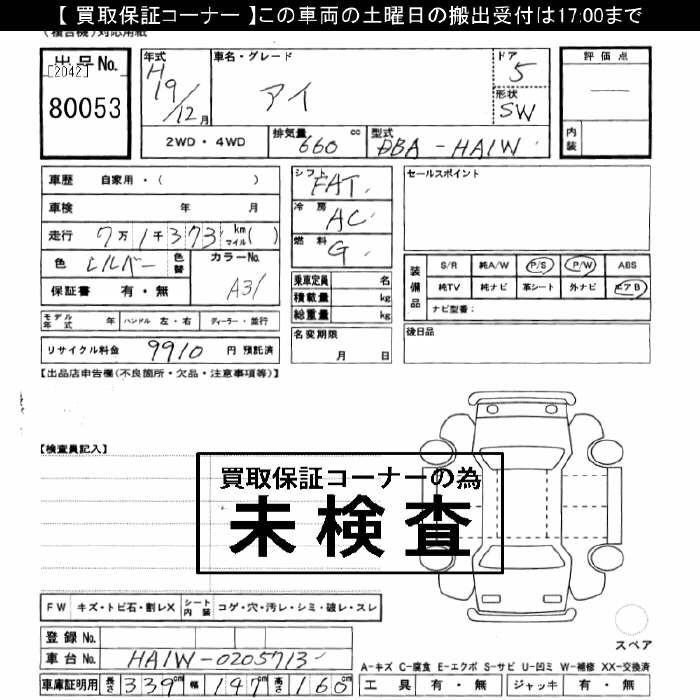 【 買取保証コーナー 】この車両の土曜日の搬出受付は17:00まで
(複合機)対応用紙
出品No.
[2042]
80053
年式
H
19/12月
車名・グレード
アイ
ドア
5
形状
SW
評価点
内装
2WD・4WD
排気量 660 cc
型式 DBA-HA1W
車歴 自家用・( )
車検 年 月
走行 7万 1千 373 km マイル( )
色 シルバー 色替
カラーNo. A31
保証書 有・無
シフト FAT
冷房 AC
燃料 G
乗車定員 名
積載量 kg
総重量 kg
セールスポイント
装備品
S/R 純A/W P/S P/W ABS
純TV 純ナビ 革シート 外ナビ エアB
ナビ型番:
モデル年式 年 ハンドル 左・右 ディーラー・並行
リサイクル料金 9910 円 預託済
名変期限 月 日
後日品
【出品店申告欄(不良箇所・欠品・注意事項等)】
【検査員記入】
買取保証コーナーの為
未検査
FW キズ・トビ石・割レX シート内装 コゲ・穴・汚レ・シミ・破レ・スレ
登録No.
車台No. HA1W-0205713
車庫証明用 長さ 339cm 幅 147cm 高さ 160cm
スペア
A-キズ C-腐食 E-エクボ S-サビ U-凹ミ W-補修 XX-交換済
工具 有・無 ジャッキ 有・無